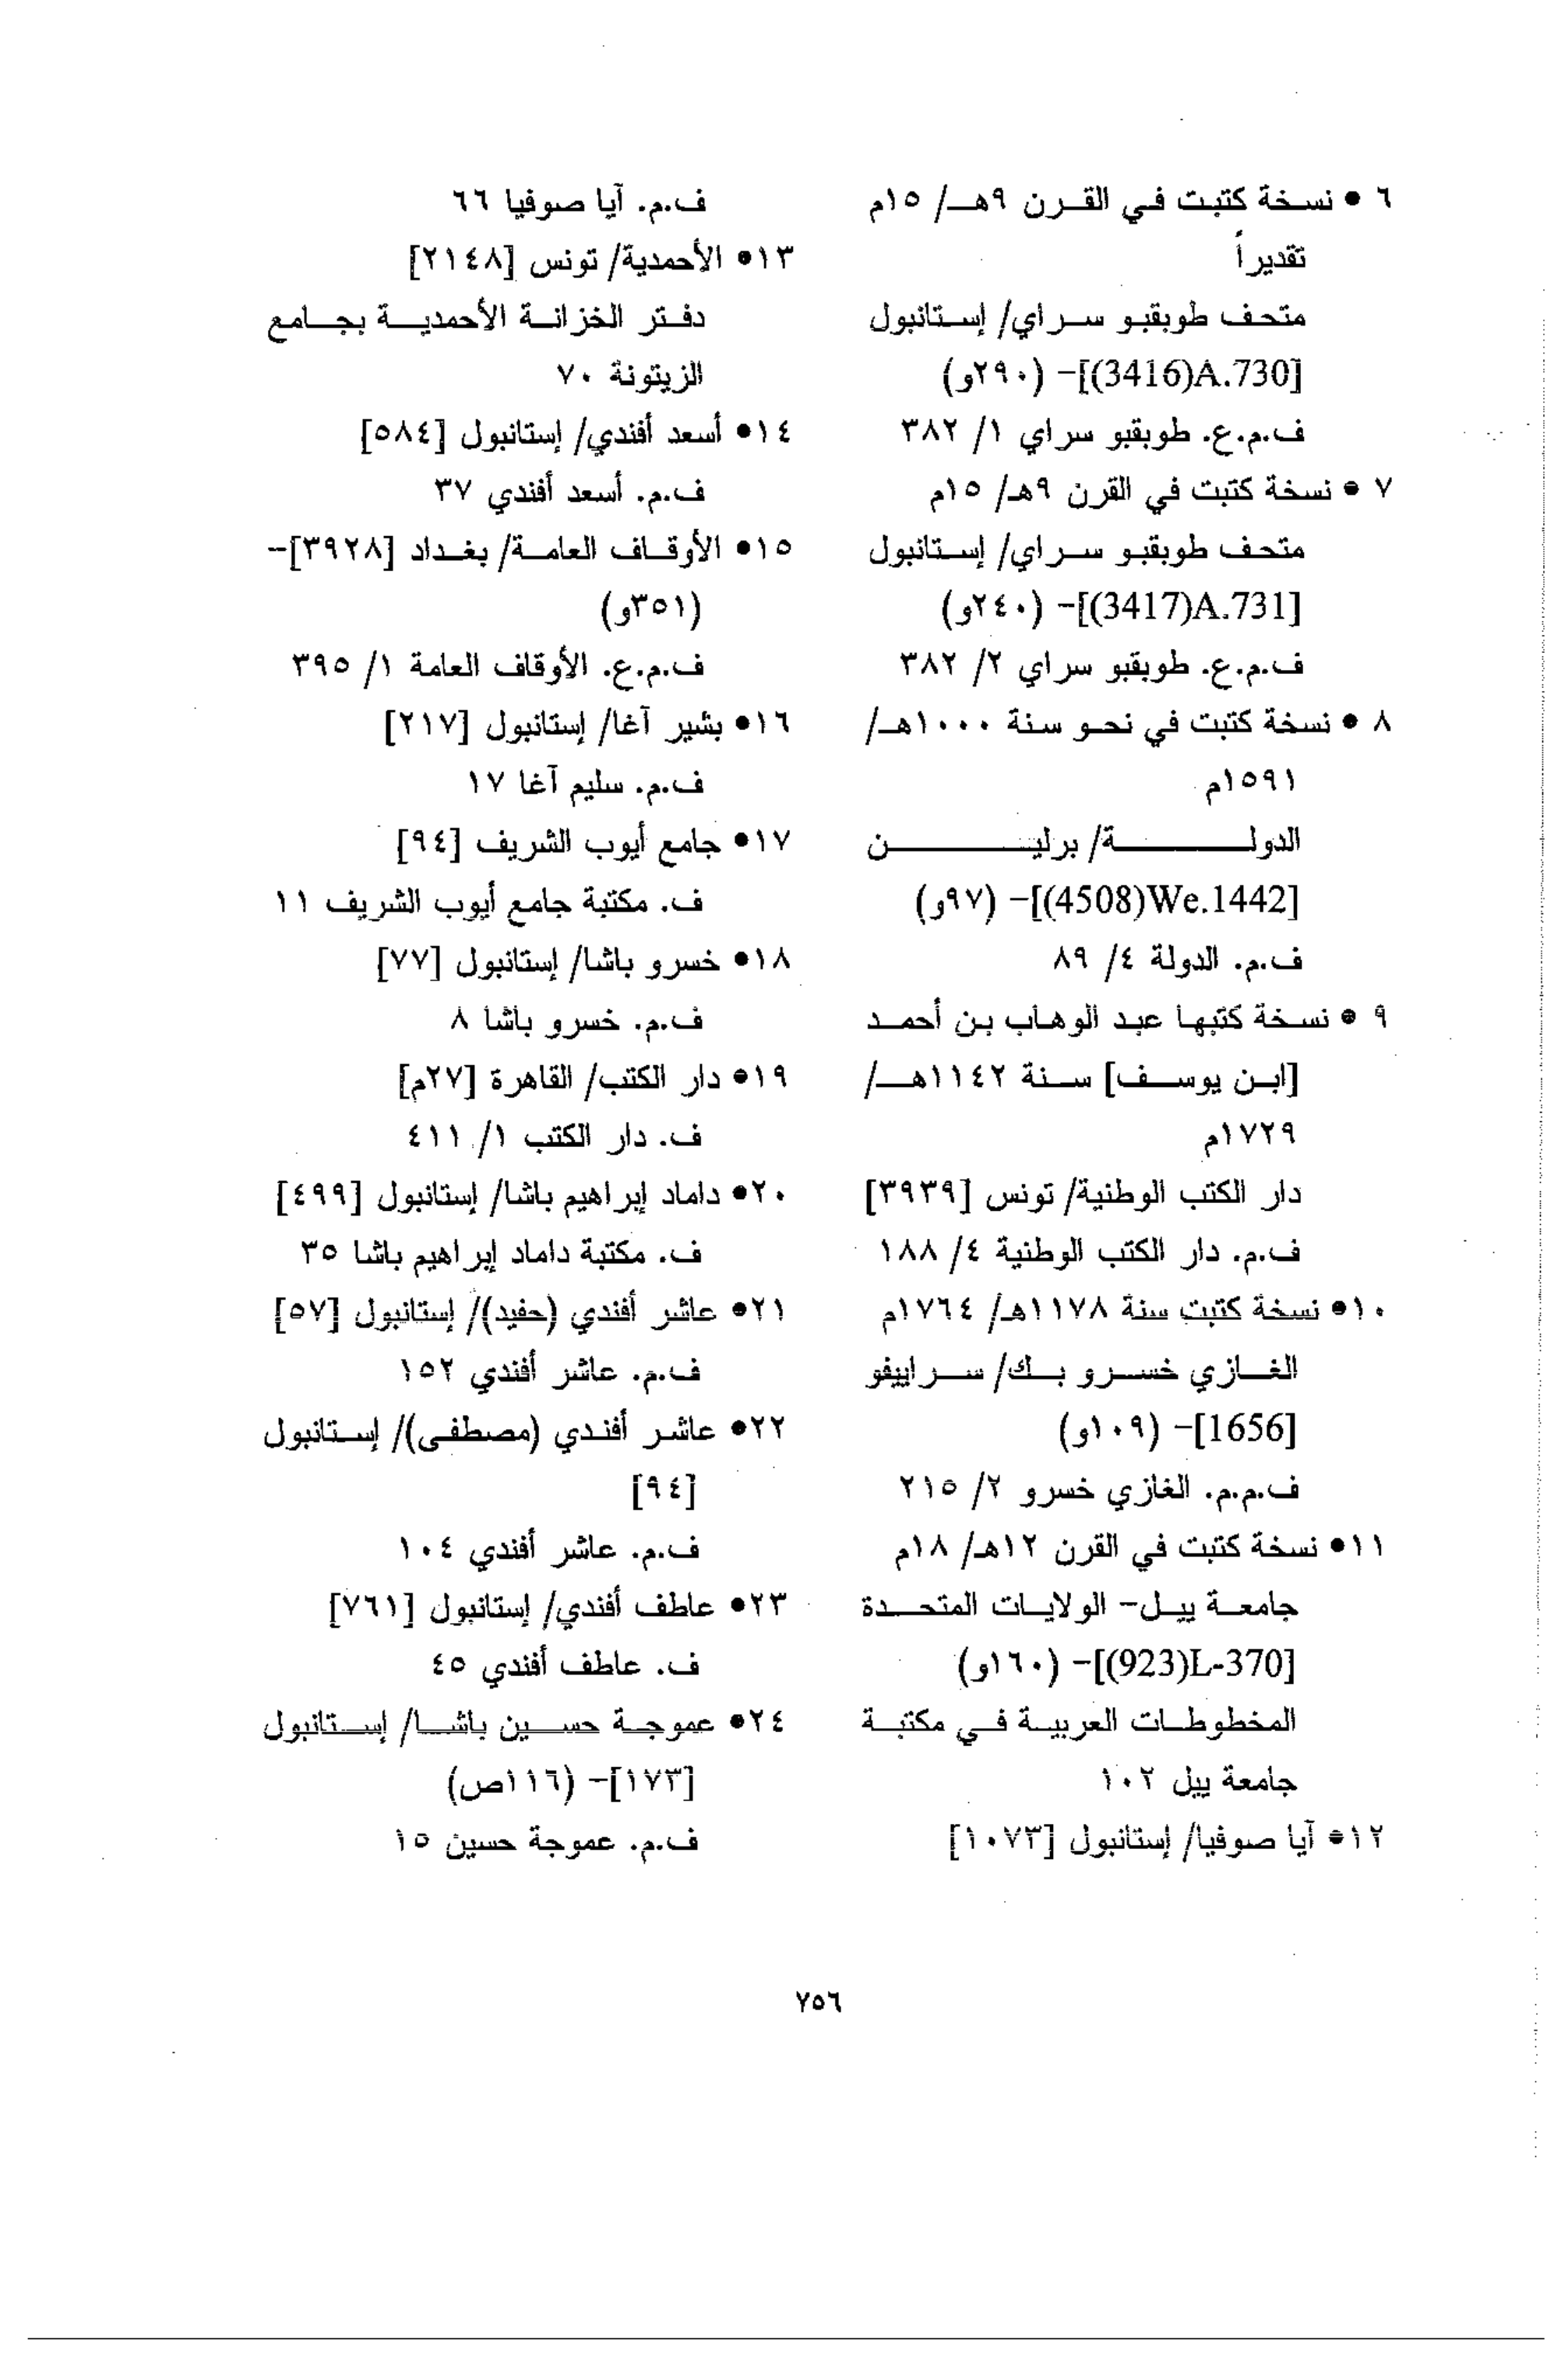 ٦ • نسخة كتبت في القرن ٩هـ/ ١٥م
تقديراً
متحف طوبقبو سراي/ إستانبول
[3416)A.730)]- (٢٩٠و)
ف.م.ع. طوبقبو سراي ١/ ٣٨٢
٧ • نسخة كتبت في القرن ٩هـ/ ١٥م
متحف طوبقبو سراي/ إستانبول
[3417)A.731)]- (٢٤٠و)
ف.م.ع. طوبقبو سراي ٢/ ٣٨٢
٨ • نسخة كتبت في نحو سنة ١٠٠٠هـ/
١٥٩١م
الدولة/ برلين
[4508)We.1442)]- (٩٧و)
ف.م. الدولة ٤/ ٨٩
٩ • نسخة كتبها عبد الوهاب بن أحمد
[ابن يوسف] سنة ١١٤٢هـ/
١٧٢٩م
دار الكتب الوطنية/ تونس [٣٩٣٩]
ف.م. دار الكتب الوطنية ٤/ ١٨٨
١٠• نسخة كتبت سنة ١١٧٨هـ/ ١٧٦٤م
الغازي خسرو بك/ سراييفو
[1656]- (١٠٩و)
ف.م.م. الغازي خسرو ٢/ ٢١٥
١١• نسخة كتبت في القرن ١٢هـ/ ١٨م
جامعة ييل- الولايات المتحدة
[923)L-370)]- (١٦٠و)
المخطوطات العربية في مكتبة
جامعة ييل ١٠٢
١٢• آيا صوفيا/ إستانبول [١٠٧٣]
ف.م. آيا صوفيا ٦٦
١٣• الأحمدية/ تونس [٢١٤٨]
دفتر الخزانة الأحمدية بجامع
الزيتونة ٧٠
١٤• أسعد أفندي/ إستانبول [٥٨٤]
ف.م. أسعد أفندي ٣٧
١٥• الأوقاف العامة/ بغداد [٣٩٢٨]-
(٣٥١و)
ف.م.ع. الأوقاف العامة ١/ ٣٩٥
١٦• بشير آغا/ إستانبول [٢١٧]
ف.م. سليم آغا ١٧
١٧• جامع أيوب الشريف [٩٤]
ف. مكتبة جامع أيوب الشريف ١١
١٨• خسرو باشا/ إستانبول [٧٧]
ف.م. خسرو باشا ٨
١٩• دار الكتب/ القاهرة [٢٧م]
ف. دار الكتب ١/ ٤١١
٢٠• داماد إبراهيم باشا/ إستانبول [٤٩٩]
ف. مكتبة داماد إبراهيم باشا ٣٥
٢١• عاشر أفندي (حفيد)/ إستانبول [٥٧]
ف.م. عاشر أفندي ١٥٢
٢٢• عاشر أفندي (مصطفى)/ إستانبول
[٩٤]
ف.م. عاشر أفندي ١٠٤
٢٣• عاطف أفندي/ إستانبول [٧٦١]
ف. عاطف أفندي ٤٥
٢٤• عموجة حسين باشا/ إستانبول
[١٧٣]- (١١٦ص)
ف.م. عموجة حسين ١٥
٧٥٦